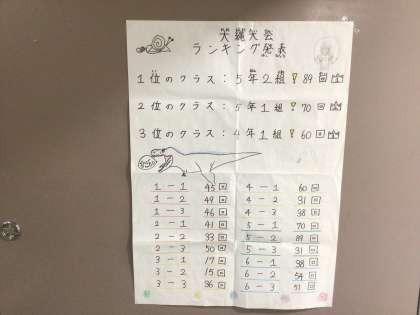 ランキング発表
1位のクラス:5年2組!89回
2位のクラス:5年1組!70回
3位のクラス:4年1組!60回
1-1 45回
1-2 49回
1-3 46回
2-1 41回
2-2 33回
2-3 50回
3-1 17回
3-2 15回
3-3 36回
4-1 60回
4-2 31回
4-3 38回
5-1 70回
5-2 89回
5-3 31回
6-1 38回
6-2 54回
6-3 51回